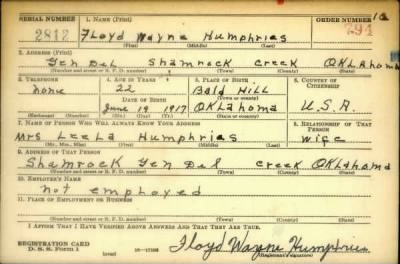 SERIAL NUMBER 1. NAME (Print) ORDER NUMBER
2812 Floyd Wayne Humphries 294
(First) (Middle) (Last)
2. ADDRESS (Print)
Gen Del Shamrock Creek Oklahoma
(Number and street or R. F. D. number) (Town) (County) (State)
3. TELEPHONE 4. AGE IN YEARS 5. PLACE OF BIRTH 6. COUNTRY OF CITIZENSHIP
none 22 Bald Hill
DATE OF BIRTH (Town or county)
June 19 1917 Oklahoma U.S.A.
(Mo.) (Day) (Yr.) (State or country)
7. NAME OF PERSON WHO WILL ALWAYS KNOW YOUR ADDRESS 8. RELATIONSHIP OF THAT PERSON
Mrs Leela Humphries wife
(Mr., Mrs., Miss) (First) (Middle) (Last)
9. ADDRESS OF THAT PERSON
Shamrock Gen Del Creek Oklahoma
(Number and street or R. F. D. number) (Town) (County) (State)
10. EMPLOYER'S NAME
not employed
11. PLACE OF EMPLOYMENT OR BUSINESS
(Number and street or R. F. D. number) (Town) (County) (State)
I AFFIRM THAT I HAVE VERIFIED ABOVE ANSWERS AND THAT THEY ARE TRUE.
REGISTRATION CARD
D. S. S. Form 1 Floyd Wayne Humphries
(Registrant's signature)